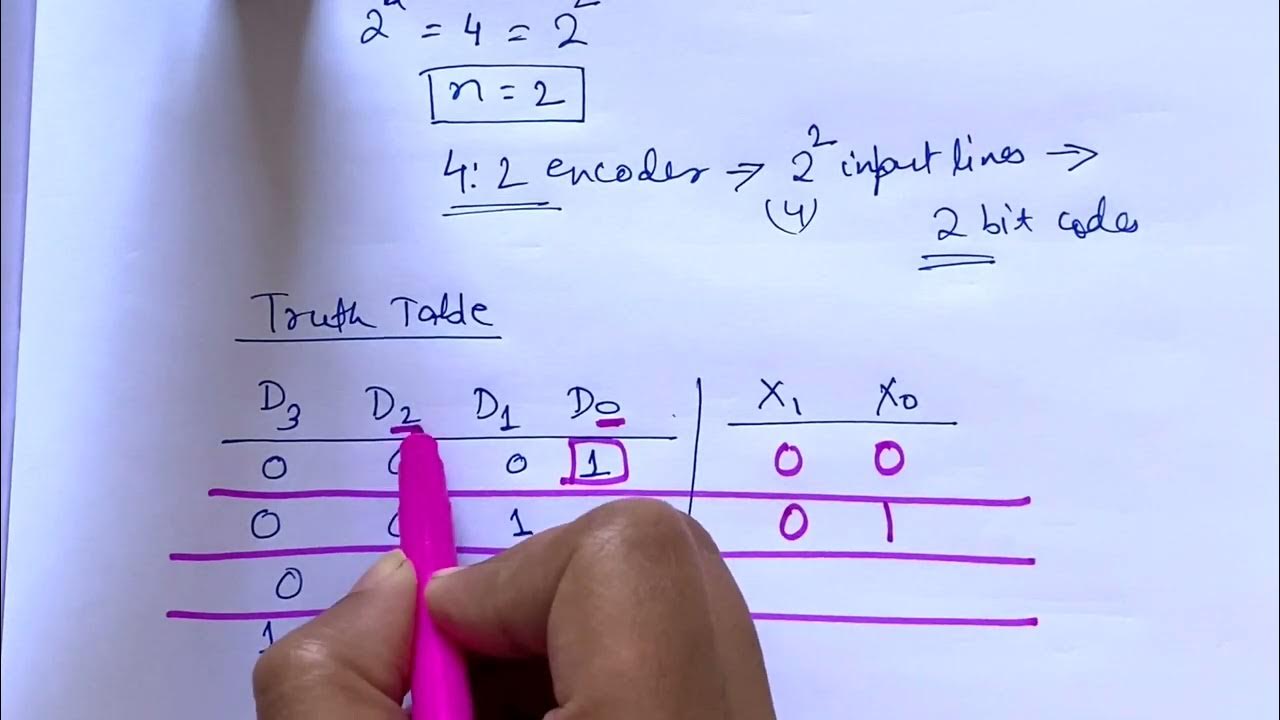 2ⁿ = 4 = 2²
n = 2
4:2 encoder → 2² input lines →
(4)
2 bit codes
Truth Table
D₃ D₂ D₁ D₀ X₁ X₀
0 0 1 0 0
0 1 0 1
0
1